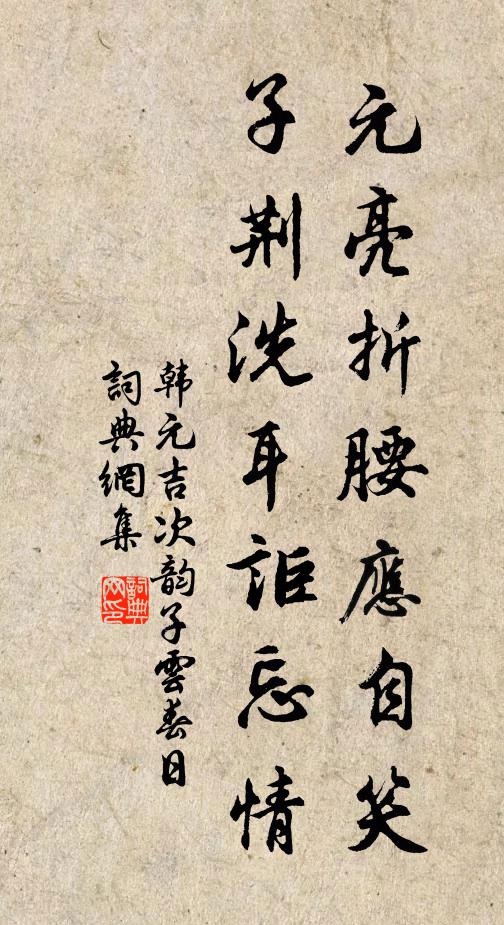 元亮折腰應自笑
子荆洗耳詎忘情
韩元吉次韵子雲春日
詞典網集
詞典網印